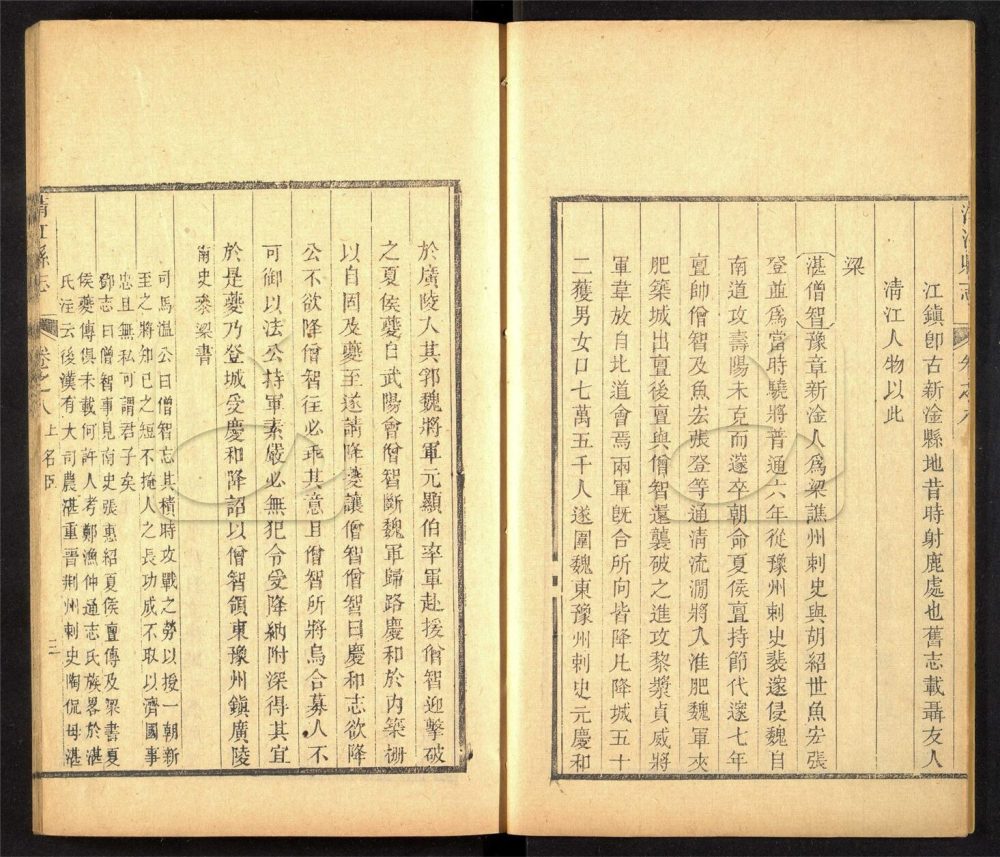 清江縣志 卷之八
江鎮卽古新淦縣地昔時射鹿處也舊志載聶友人
清江人物以此
梁
湛僧智豫章新淦人爲梁譙州刺史與胡紹世魚宏張
登並爲當時驍將普通六年從豫州刺史裴邃侵魏自
南道攻壽陽未克而邃卒朝命夏侯亶持節代邃七年
亶帥僧智及魚宏張登等通淸流澗將入淮肥魏軍夾
肥築城出亶後亶與僧智還襲破之進攻黎漿貞威將
軍韋放自北道會焉兩軍旣合所向皆降凡降城五十
二獲男女口七萬五千人遂圍魏東豫州刺史元慶和
於廣陵入其郛魏將軍元顯伯率軍赴援僧智迎擊破
之夏侯夔自武陽會僧智斷魏軍歸路慶和於內築柵
以自固及夔至遂請降夔讓僧智僧智曰慶和志欲降
公不欲降僧智往必乖其意且僧智所將烏合募人不
可御以法公持軍素嚴必無犯令受降納附深得其宜
於是夔乃登城受慶和降詔以僧智領東豫州鎮廣陵
南史叅梁書
司馬溫公曰僧智忘其積時攻戰之勞以授一朝新
至之將知己之短不掩人之長功成不取以濟國事
忠且無私可謂君子矣
鄧志曰僧智事見南史張惠紹夏侯亶傳及梁書夏
侯夔傳俱未載何許人考鄭漁仲通志氏族畧於湛
氏注云後漢有大司農湛重晉荆州刺史陶侃母湛
清江縣志 卷之八上 名臣 三